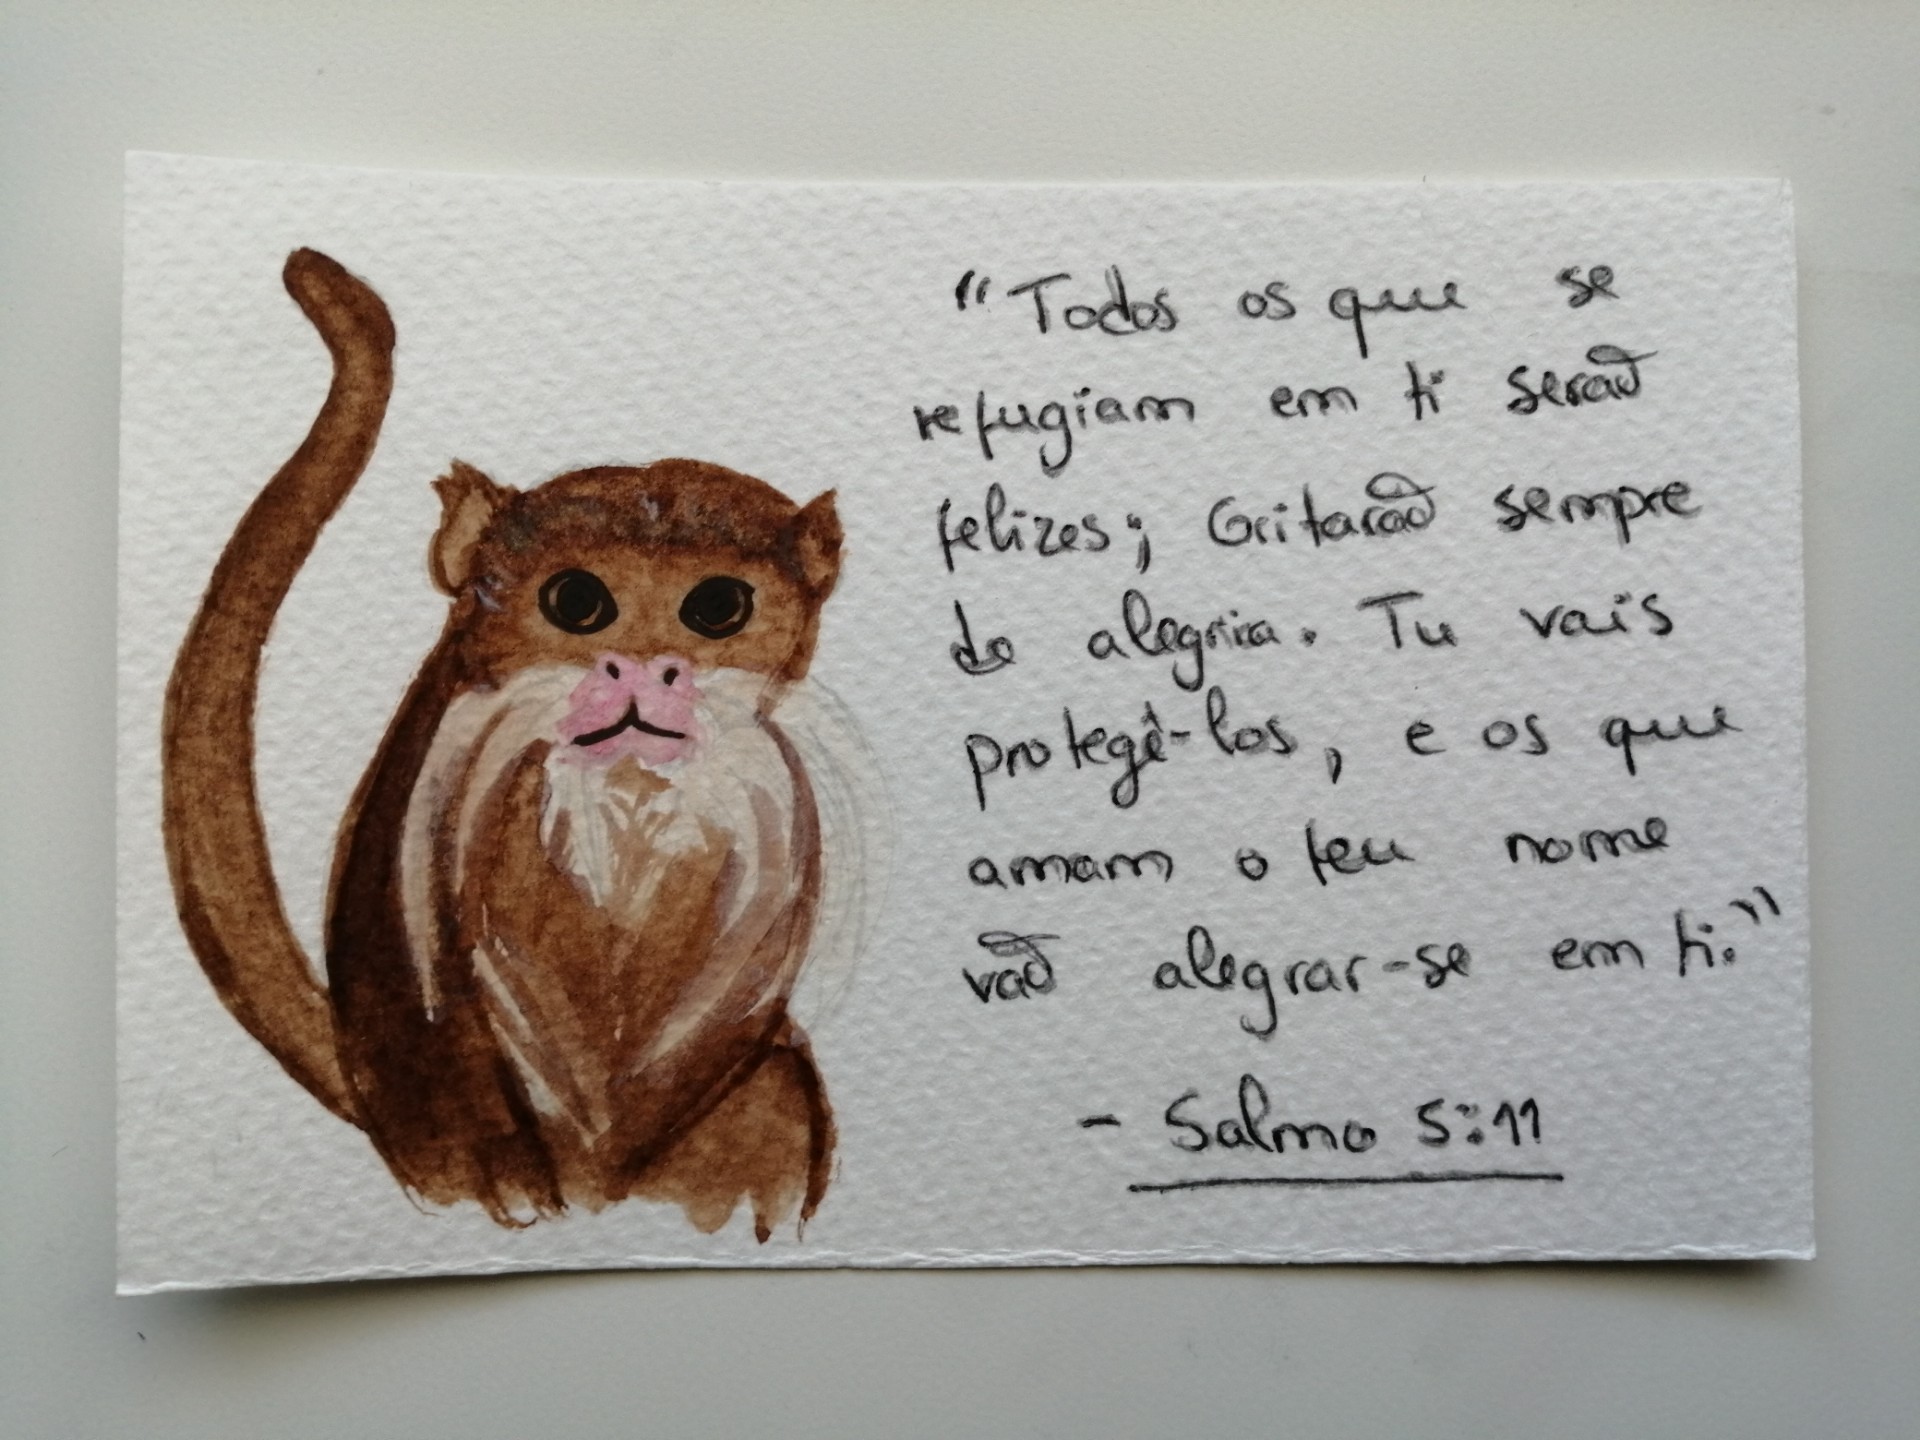 "Todos os que se
refugiam em ti serão
felizes; Gritarão sempre
de alegria. Tu vais
protegê-los, e os que
amam o teu nome
vão alegrar-se em ti."
- Salmo 5:11